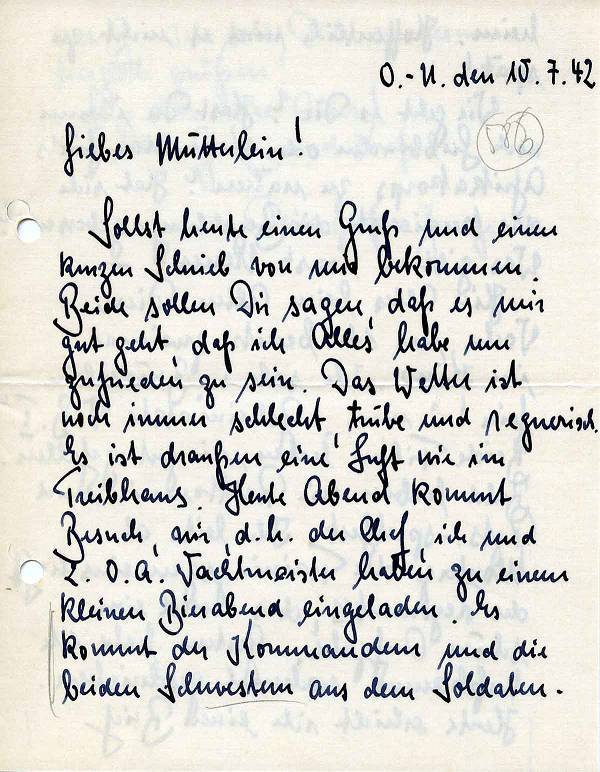 O.-U. den 10.7.42
586
Liebes Mütterlein!
Sollst heute einen Gruß und einen
kurzen Schrieb von mir bekommen
Beide sollen Dir sagen, daß es mir
gut geht, daß ich Alles habe um
zufrieden zu sein. Das Wetter ist
noch immer schlecht, trübe und regnerisch.
Es ist draußen eine Luft wie im
Treibhaus. Heute Abend kommt
Besuch, wir, d.h. der Chef, ich und
2. O.A. Wachtmeister haben zu einem
kleinen Bierabend eingeladen. Es
kommt der Kommandeur und die
beiden Schwestern aus dem Soldaten-